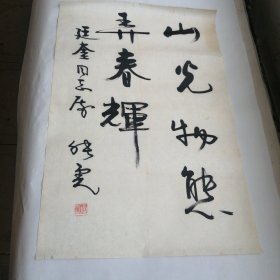 山光物態
弄春輝
廷奎同志屬